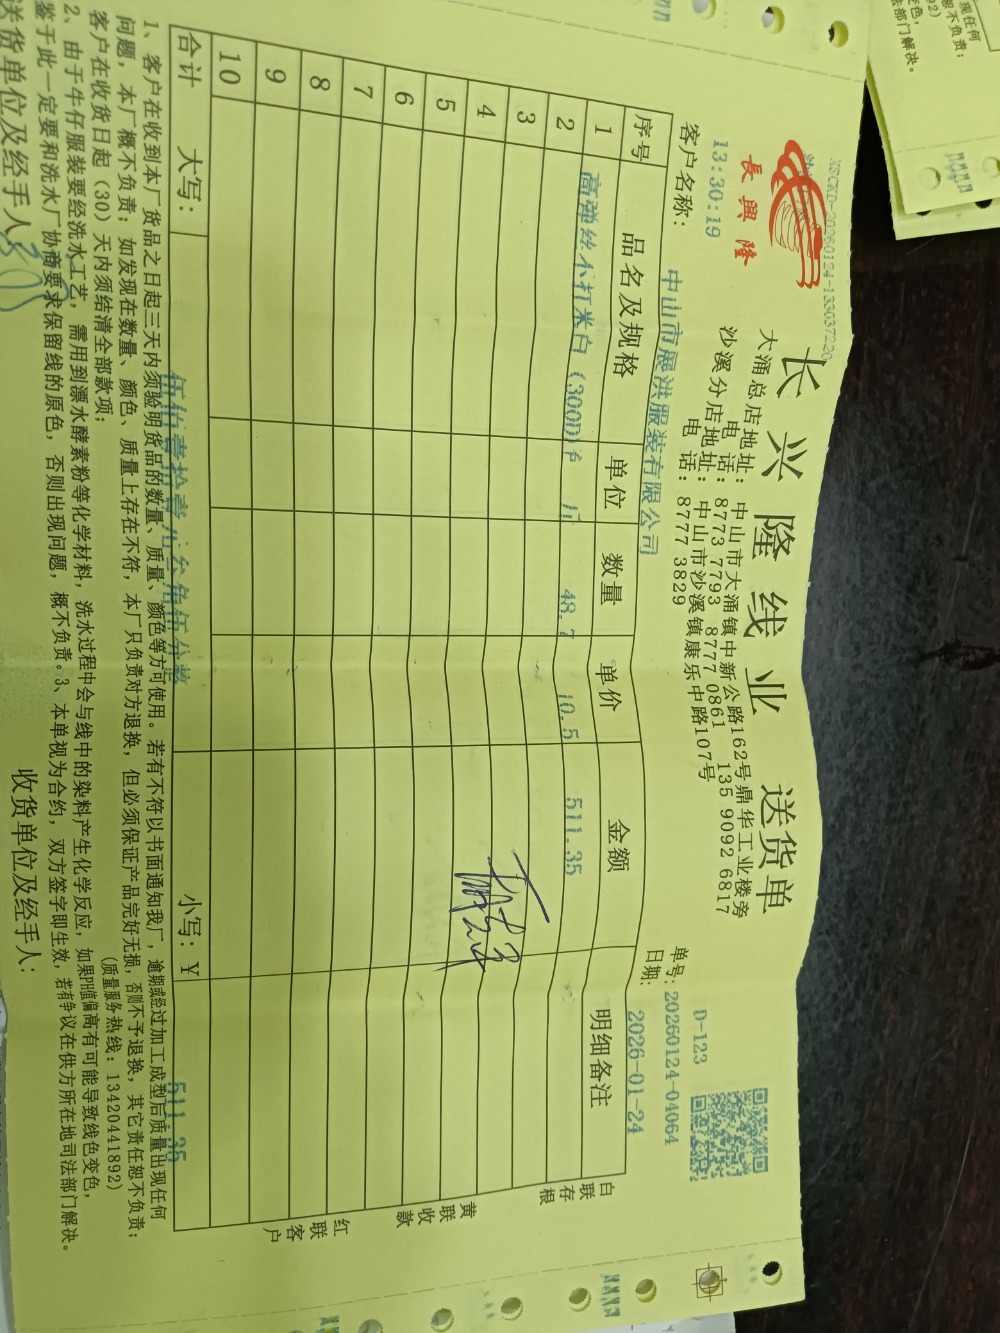 XSCKD-20260124-133037220
長興隆
长兴隆线业 送货单
大涌总店地址: 中山市大涌镇中新公路162号鼎华工业楼旁
电 话: 8773 7793 8777 0861 135 9092 6817
沙溪分店地址: 中山市沙溪镇康乐中路107号
电 话: 8777 3829
D-123
13:30:19
单号: 20260124-04064
客户名称: 中山市晟洪服装有限公司
日期: 2026-01-24
序号 品名及规格 单位 数量 单价 金额 明细备注
1 高弹丝不打米白(300D) 48.7 10.5 511.35
2
3
4
5
6
7
8
9
10
合计 大写: 伍佰壹拾壹元叁角伍分整 小写: ¥ 511.35
白联存根
黄联收款
红联客户
1、客户在收到本厂货品之日起三天内须验明货品的数量、质量、颜色等方可使用。若有不符以书面通知我厂,逾期或经过加工成型后质量出现任何
问题,本厂概不负责;如发现在数量、颜色、质量上存在不符,本厂只负责对方退换,但必须保证产品完好无损,否则不予退换,其它责任恕不负责;
客户在收货日起(30)天内须结清全部款项;
(质量服务热线: 13420441892)
2、由于牛仔服装要经洗水工艺,需用到漂水酵素粉等化学材料,洗水过程中会与线中的染料产生化学反应,如果PH值偏高有可能导致线色变色,
鉴于此一定要和洗水厂协商要求保留线的原色,否则出现问题,概不负责。3、本单视为合约,双方签字即生效,若有争议在供方所在地司法部门解决。
送货单位及经手人:
收货单位及经手人:
现任何
恕不负责;
892)
变色,
法部门解决。